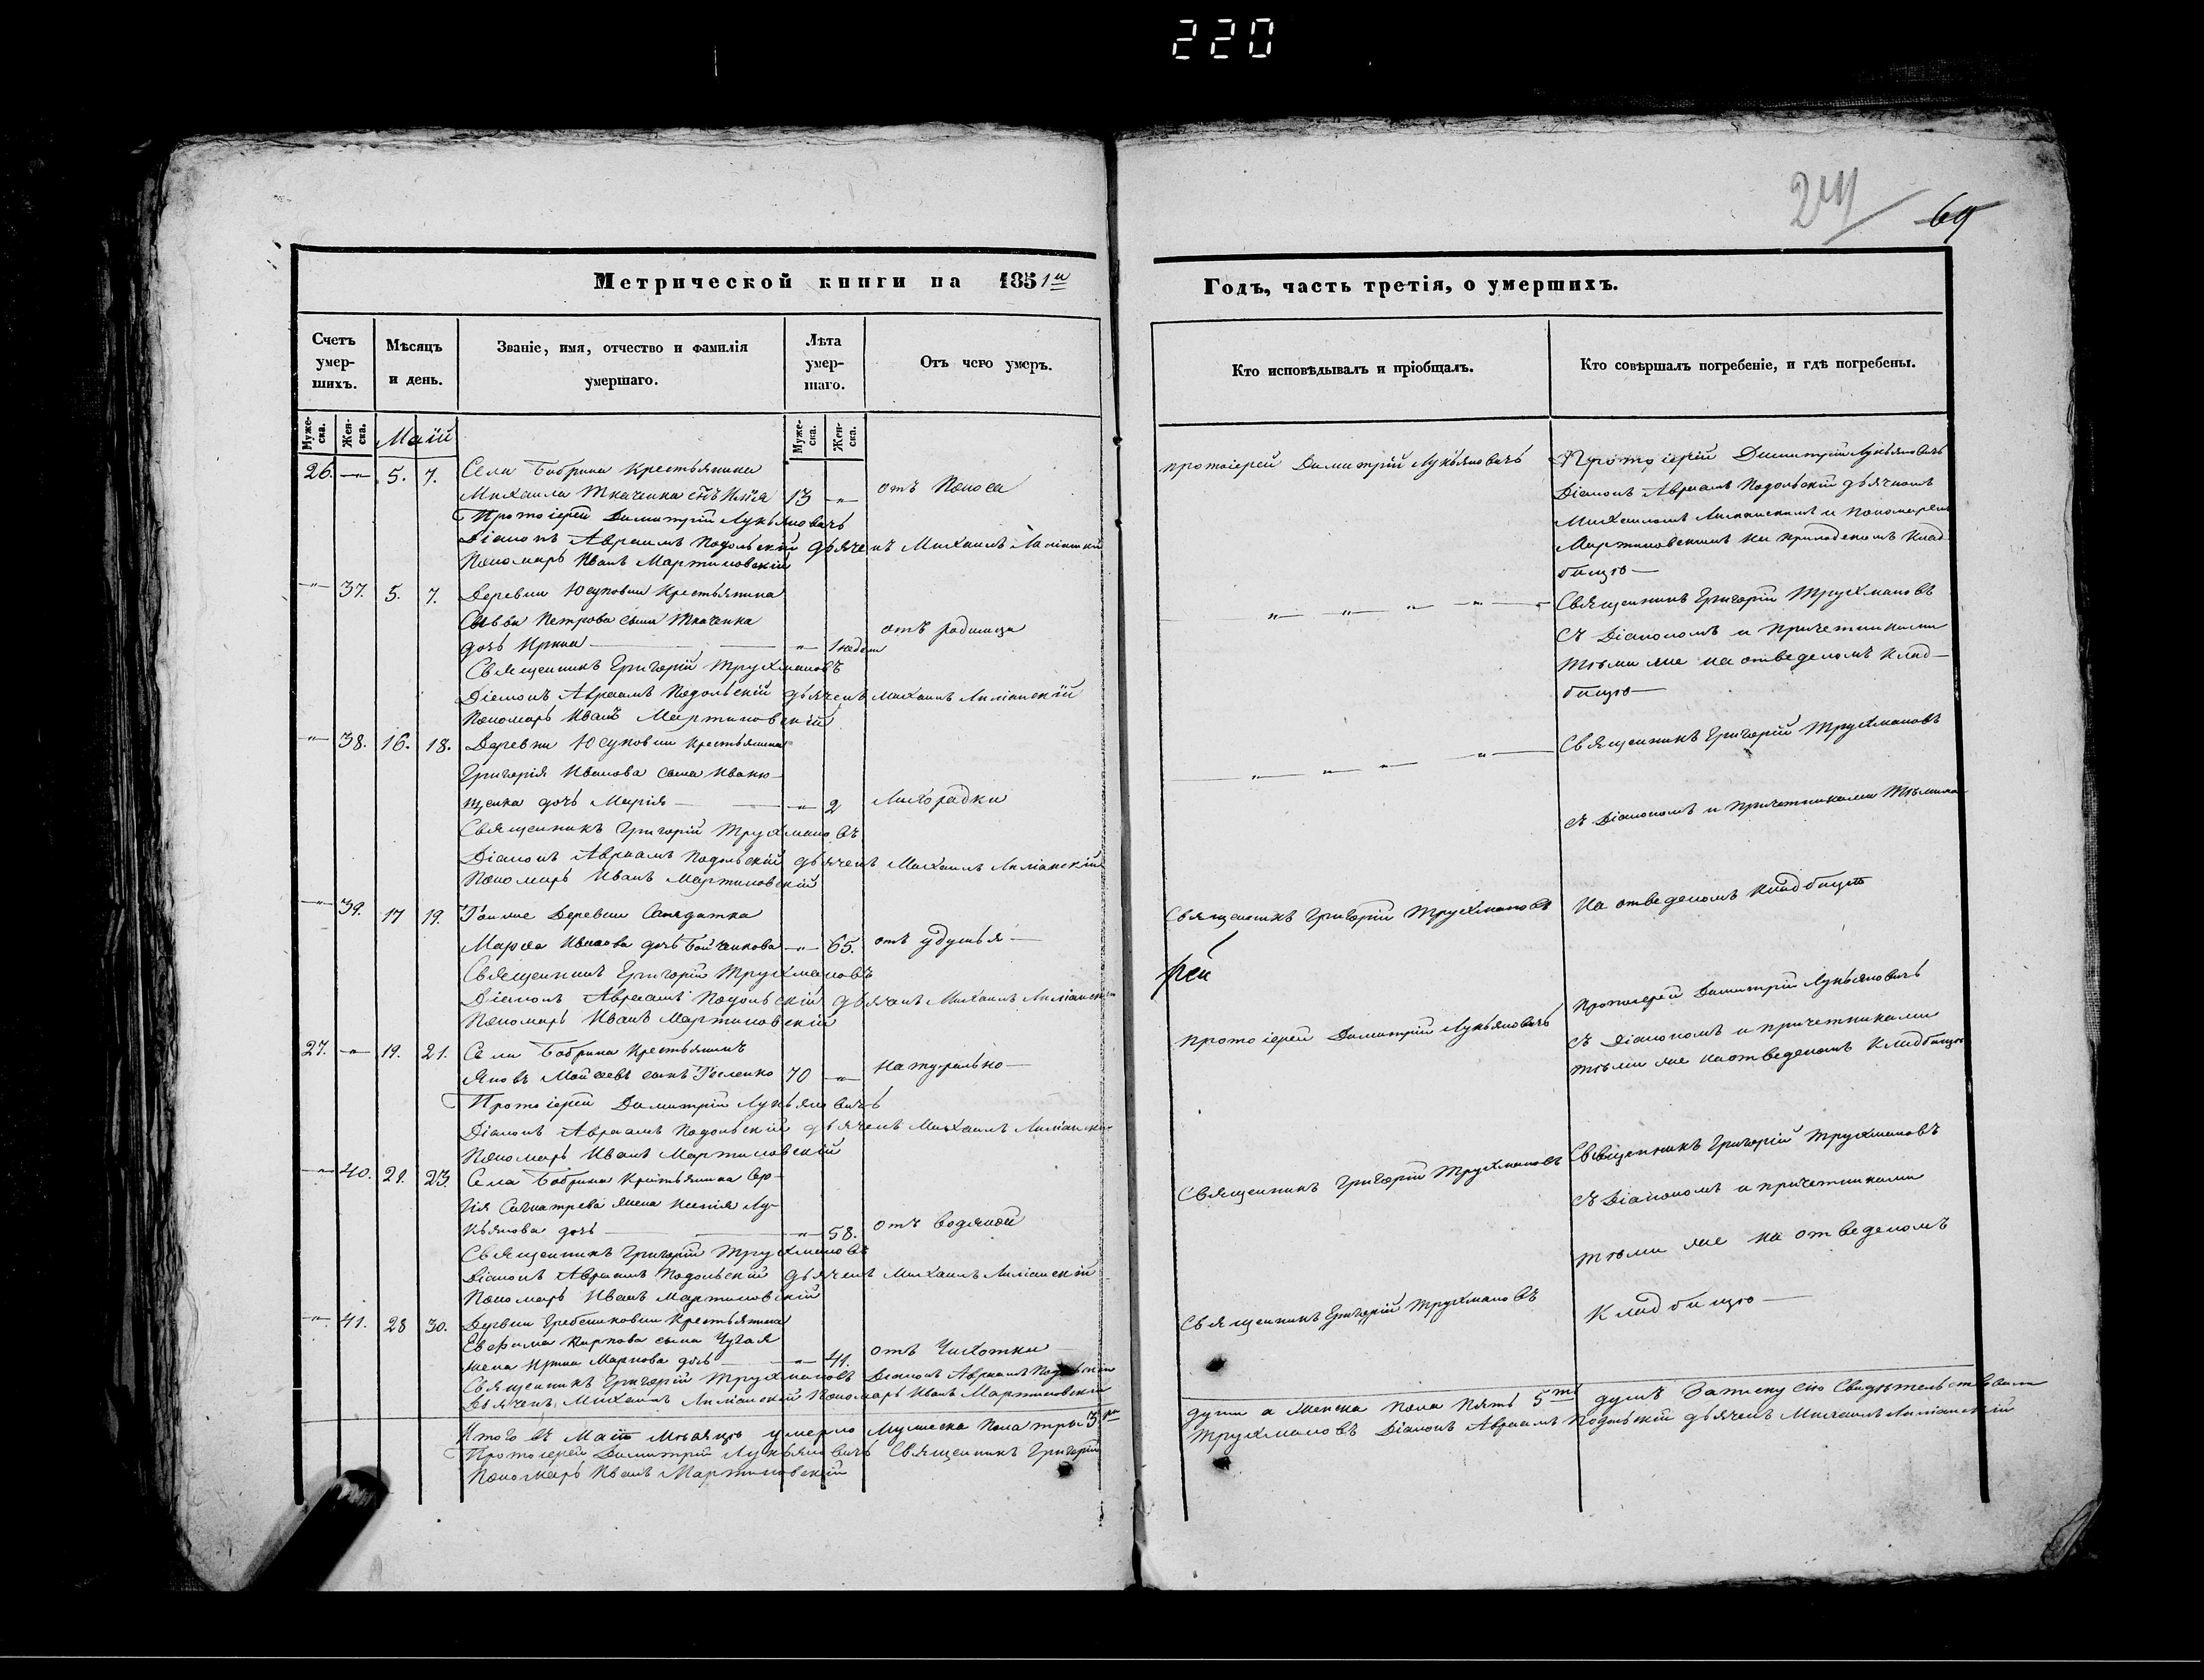 220
69
Метрической книги на 1851й
Годъ, часть третія, о умершихъ.
Счетъ умер-шихъ.
Мѣсяцъ и день.
Званіе, имя, отчество и фамилія умершаго.
Лѣта умер-шаго.
Отъ чего умеръ.
Кто исповѣдывалъ и пріобщалъ.
Кто совѣршалъ погребеніе, и гдѣ погребены.
Муже-ска.
Жен-ска.
Маій
Муже-ска.
Жен-ска.
26. —"— 5. 7. Села Бобрина Крестьянина
Михаила Ткаченка сынъ Илія 13 —"— отъ Поноса
Протоіерей Димитрій Лукьяновичъ
Діаконъ Авраамъ Подольскій дьячекъ Михаилъ
Пономарь Иванъ Мартиновскій
протоіерей Димитрій Лукьяновичъ
Протоіерей Димитрій Лукьяновичъ
Діаконъ Авраамъ Подольскій дьячкомъ
Михаиломъ и Пономарем
Мартиновскимъ на приходскомъ Клад-
бищѣ —
—"— 37. 5. 7. Деревни Юсуповки Крестьянина
Савви Петрова сына Ткаченка
дочь Ирина — —"— 1 недели отъ родимца
Священникъ Григорій Трухмановъ
Діаконъ Авраамъ Подольскій дьячекъ Михаилъ
Пономарь Иванъ Мартиновскій
— " — " — " — " —
Священникъ Григорій Трухмановъ
Съ Діакономъ и Причетниками
тѣми же на отведеномъ клад-
бищѣ —
—"— 38. 16. 18. Деревни Юсуповки Крестьянина
Григорія Иванова сына Иваню-
щенка дочь Марія — —"— 2 Лихорадки
Священникъ Григорій Трухмановъ
Діаконъ Авраамъ Подольскій дьячекъ Михаилъ
Пономарь Иванъ Мартиновскій
— " — " — " — " —
Священникъ Григорій Трухмановъ
съ Діакономъ и Причетниками тѣмиже
на отведеномъ кладбищѣ
—"— 39. 17 19. Тоиже Деревни Солдатка
Марѳа Иванова дочь Бойченкова —"— 65. отъ удушья —
Священникъ Григорій Трухмановъ
Діаконъ Авраамъ Подольскій дьячекъ Михаилъ
Пономарь Иванъ Мартиновскій
Священникъ Григорій Трухмановъ
рей
Протоіерей Димитрій Лукьяновичъ
съ Діакономъ и причетниками
тѣми же на отведеномъ Кладбищѣ
27. —"— 19. 21. Села Бобрина Крестьянинъ
Яковъ Мойсеевъ сынъ 70 —"— Натурально —
Протоіерей Димитрій Лукьяновичъ
Діаконъ Авраамъ Подольскій дьячекъ Михаилъ
Пономарь Иванъ Мартиновскій
протоіерей Димитрій Лукьяновичъ
—"— 40. 21. 23. Села Бобрина Крестьянина Сер-
гія жена Ксенія Лу-
кьянова дочь — —"— 58. отъ водяной
Священникъ Григорій Трухмановъ
Діаконъ Авраамъ Подольскій дьячекъ Михаилъ
Пономарь Иванъ Мартиновскій
Священникъ Григорій Трухмановъ
Священникъ Григорій Трухмановъ
съ Діакономъ и причетниками
тѣми же на отведеномъ
Кладбищѣ —
—"— 41. 28 30. Деревни Гребениковки Крестьянина
Евфима Карпова сына Чугая
жена Ирина Маркова дочь — —"— 41. отъ Чихотки
Священникъ Григорій Трухмановъ Діаконъ Авраамъ Подольскій
Дьячекъ Михаилъ Пономарь Иванъ Мартиновскій
Священникъ Григорій Трухмановъ
Итого въ Маіѣ Мѣсяцѣ умерло Мужеска Пола три 3ри
души а женска Пола Пять 5ть душъ Записку сію Свидѣтельствовали
Протоіерей Димитрій Лукьяновичъ Священникъ Григорій
Трухмановъ Діаконъ Авраамъ Подольскій дьячекъ Михаилъ
Пономарь Иванъ Мартиновскій